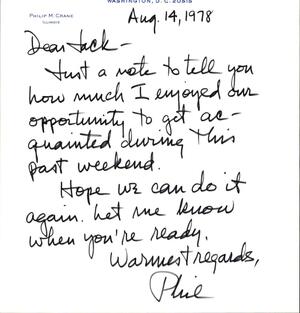 WASHINGTON, D.C. 20515
PHILIP M. CRANE
ILLINOIS
Aug. 14, 1978
Dear Jack -
Just a note to tell you
how much I enjoyed our
opportunity to get ac-
quainted during this
past weekend.
Hope we can do it
again. Let me know
when you're ready.
Warmest regards,
Phil